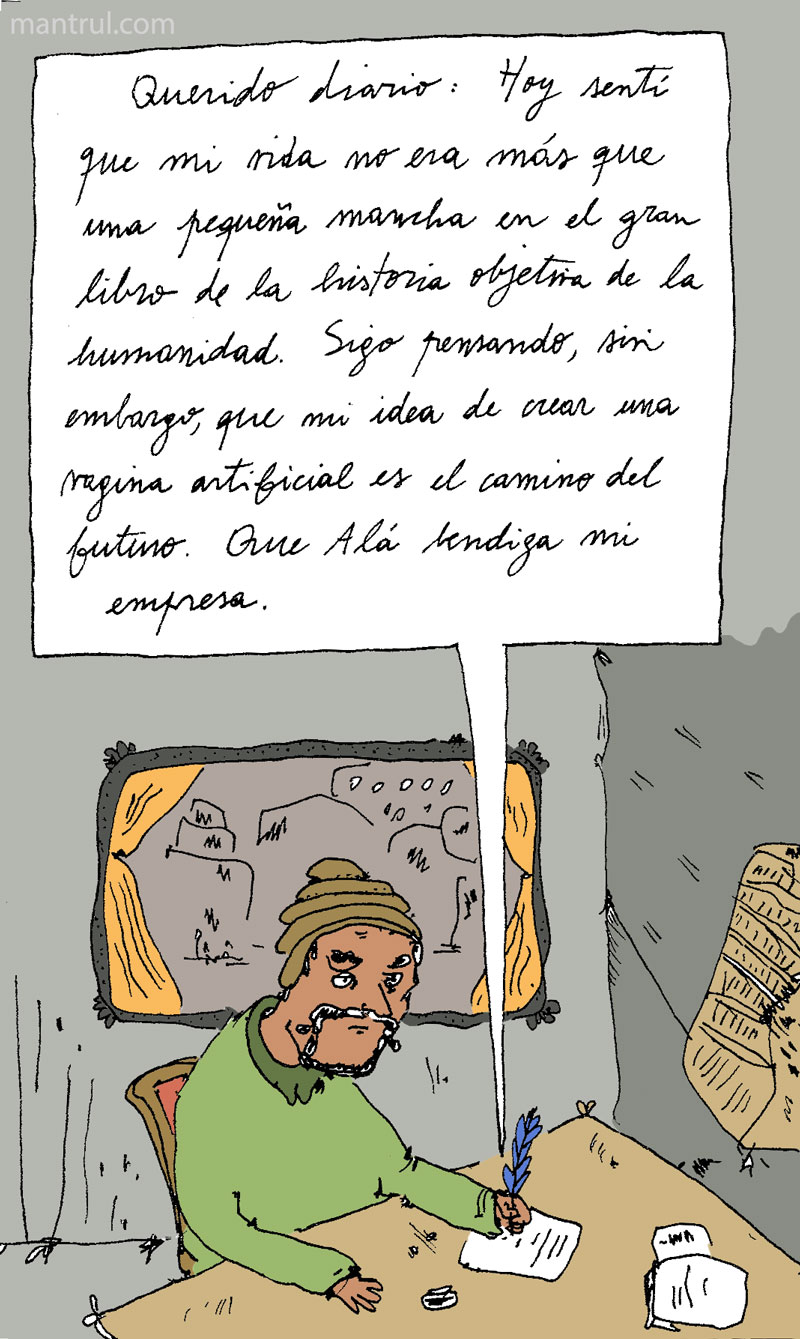 mantrul.com
Querido diario: Hoy sentí
que mi vida no era más que
una pequeña mancha en el gran
libro de la historia objetiva de la
humanidad. Sigo pensando, sin
embargo, que mi idea de crear una
vagina artificial es el camino del
futuro. Que Alá bendiga mi
empresa.